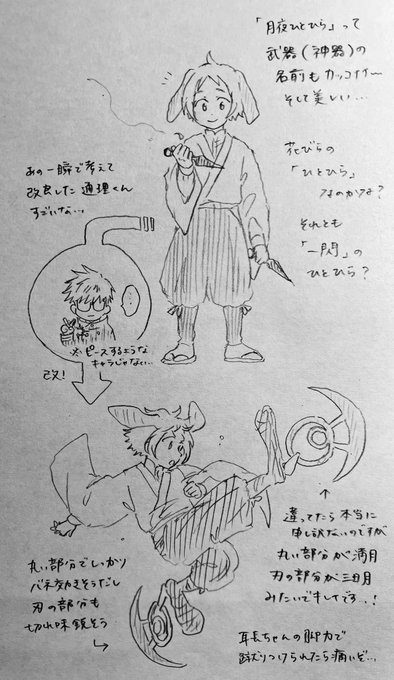 「月夜ひとひら」って
武器(神器)の
名前もカッコイイ〜
そして美しい…
花びらの
「ひとひら」
なのかな?
それとも
「一閃」の
ひとひら?
あの一瞬で考えて
改良した道理くん
すごいな…
…
※ピースするような
キャラじゃない…
改!
違ってたら本当に
申し訳ないのですが
丸い部分が満月
刃の部分が三日月
みたいでキレイです…!
丸い部分でしっかり
バネ効きそうだし
刃の部分も
切れ味鋭そう
耳長ちゃんの脚力で
蹴りつけられたら痛いぞ…